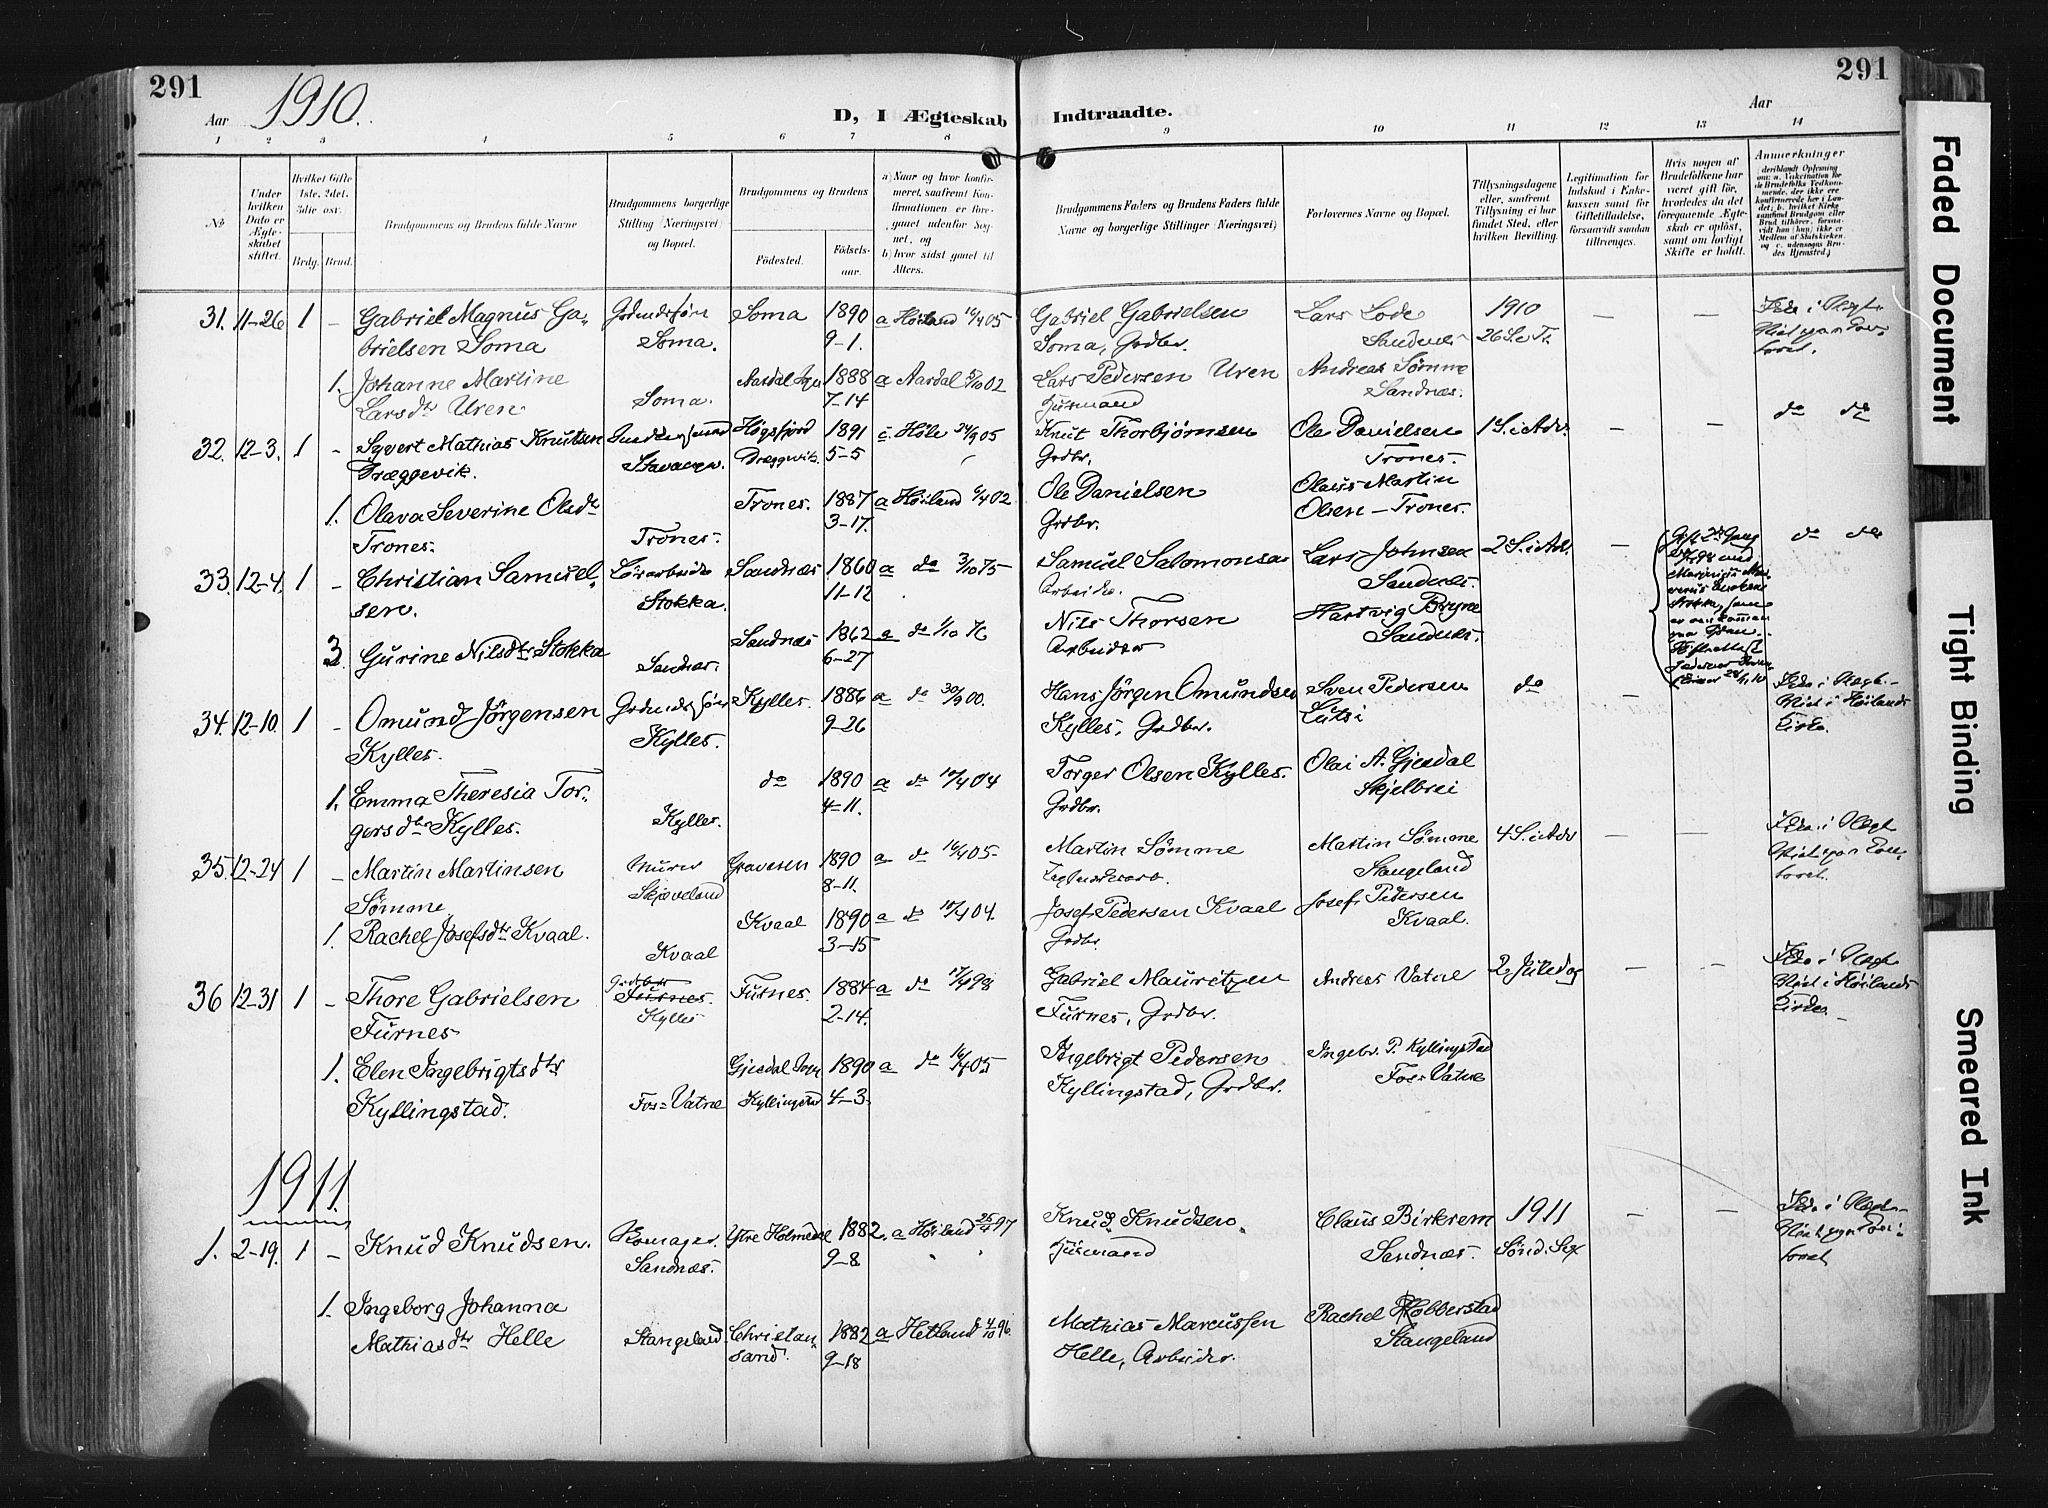 291
Aar 1910.
D, I Ægteskab Indtraadte.
Aar
291
1 2 3 4 5 6 7 8 9 10 11 12 13 14
No
Under hvilken Dato er Ægteskabet stiftet.
Hvilket Gifte (1ste, 2det, 3die osv.
Brdg. Brud.
Brudgommens og Brudens fulde Navne
Brudgommens borgerlige Stilling (Næringsvei) og Bopæl.
Brudgommens og Brudens
Födested.
Födselsaar.
a) Naar og hvor konfirmeret, saafremt Konfirmationen er foregaaet udenfor Sognet, og
b) hvor sidst gaaet til Alters.
Brudgommens Faders og Brudens Faders fulde Navne og borgerlige Stillinger (Næringsvei)
Forlovernes Navne og Bopæl.
Tillysningsdagene eller, saafremt Tillysning ei har fundet Sted, efter hvilken Bevilling.
Legitimation for Indskud i Enkekassen samt for Giftetilladelse, forsaavidt saadan tiltrænges.
Hvis nogen af Brudefolkene har været gift för, hvorledes da det foregaaende Ægteskab er oplöst, samt om lovligt Skifte er holdt.
Anmerkninger
31. 11-26 1 - Gabriel Magnus Ga- Soma 1890 a Höiland 16/4 05 Gabriel Gabrielsen Lars Lode 1910 - -
brielsen Soma Soma. 9-1. Soma, Grdbr. Sandnes 26 S. e Tr.
1. Johanne Martine Aardal 1888 a Aardal 5/10 02 Lars Pedersen Uren Andreas Sömme
Larsdtr Uren Soma. 7-14 Husmand Sandnæs.
32. 12-3. 1 - Syvert Mathias Knutsen Högsfjord 1891 Höle 24/9 05 Knut Thorbjörnsen Ole Danielsen 1 S. i Adv. - - do do
Dræggevik. Stavanger Dræggevik. 5-5 Grdbr. Trones.
1. Olava Severine Olsdtr Trones. 1887 a Höiland 6/4 02 Ole Danielsen Olaus Martin
Trones. Trones. 3-17. Grdbr. Olsen - Trones.
33. 12-4. 1 - Christian Samuel- Sandnæs 1860 a do 3/10 75 Samuel Salomonsen Lars Johnsen 2 S. i Adv. - do do
sen. Stokka. 11-12 Arbeider. Sandnæs.
3. Gurine Nilsdtr Stokka Sandnæs 1862 a do 1/10 76 Nils Thorsen Hartvig Bryne
Sandnæs. 6-27 Arbeider Sandnæs.
34. 12-10. 1 - Omund Jörgensen Kylles. 1886 a do 30/9 00. Hans Jörgen Omundsen Sven Pedersen do -
Kylles. Kylles. 9-26 Kylles, Grdbr. Lutsi
1. Emma Theresia Tor- do 1890 a do 10/4 04 Torger Olsen Kylles. Olai A. Gjesdal
gersdtr Kylles. Kylles. 4-11. Grdbr. Skjelbrei
35. 12-24 1 - Martin Martinsen Murer Gravesen 1890 a do 16/4 05. Martin Sömme Martin Sömme 4 S. i Adv - -
Sömme Skjæveland 8-11. Stangeland
1. Rachel Josefsdtr Kvaal. Kvaal 1890 a do 10/4 04. Josef Pedersen Kvaal Josef Pedersen
Kvaal 3-15 Grdbr. Kvaal.
36 12-31 1 - Thore Gabrielsen Furnes. Furnes. 1884 a do 17/4 98 Gabriel Mauritzen Andreas Vatne 2 Juledag - -
Furnes Kylles 2-14. Furnes, Grdbr.
1. Elen Ingebrigtsdtr Gjesdal 1890 a do 16/4 05 Ingebrigt Pedersen Ingebr. P. Kyllingstad
Kyllingstad. Fos-Vatne Kyllingstad 4-3. Kyllingstad, Grdbr. Fos-Vatne
1911.
1. 2-19. 1 - Knud Knudsen. Ytre Holmedal 1882. a Höiland 25/4 97 Knud Knudsen Claus Birkrem 1911 - -
Sandnæs. 9-8 Husmand Sandnæs. Sönd. Sex
1. Ingeborg Johanna Christian- 1882 a Hetland 4/10 96. Mathias Marcussen Rachel Hobberstad
Mathiasdtr Helle Stangeland sand. 9-18 Helle, Arbeider. Stangeland
Faded Document
Tight Binding
Smeared Ink